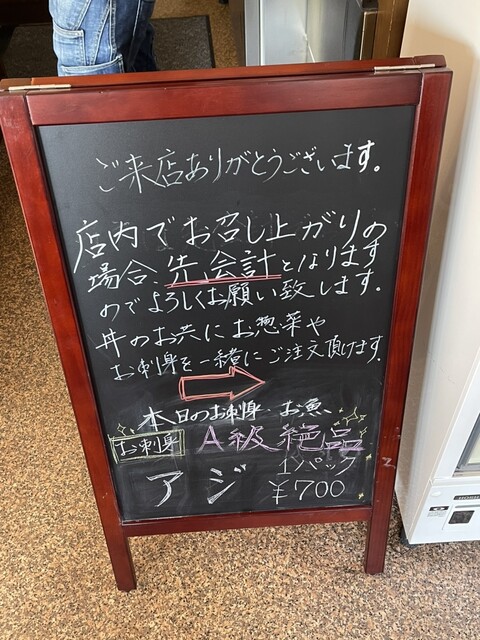 ご来店ありがとうございます。
店内でお召し上がりの
場合、先会計となります
のでよろしくお願い致します。
丼のお共にお惣菜や
お刺身を一緒にご注文頂けます。
本日のお刺身・お魚
お刺身 A級絶品
アジ 1パック
¥700